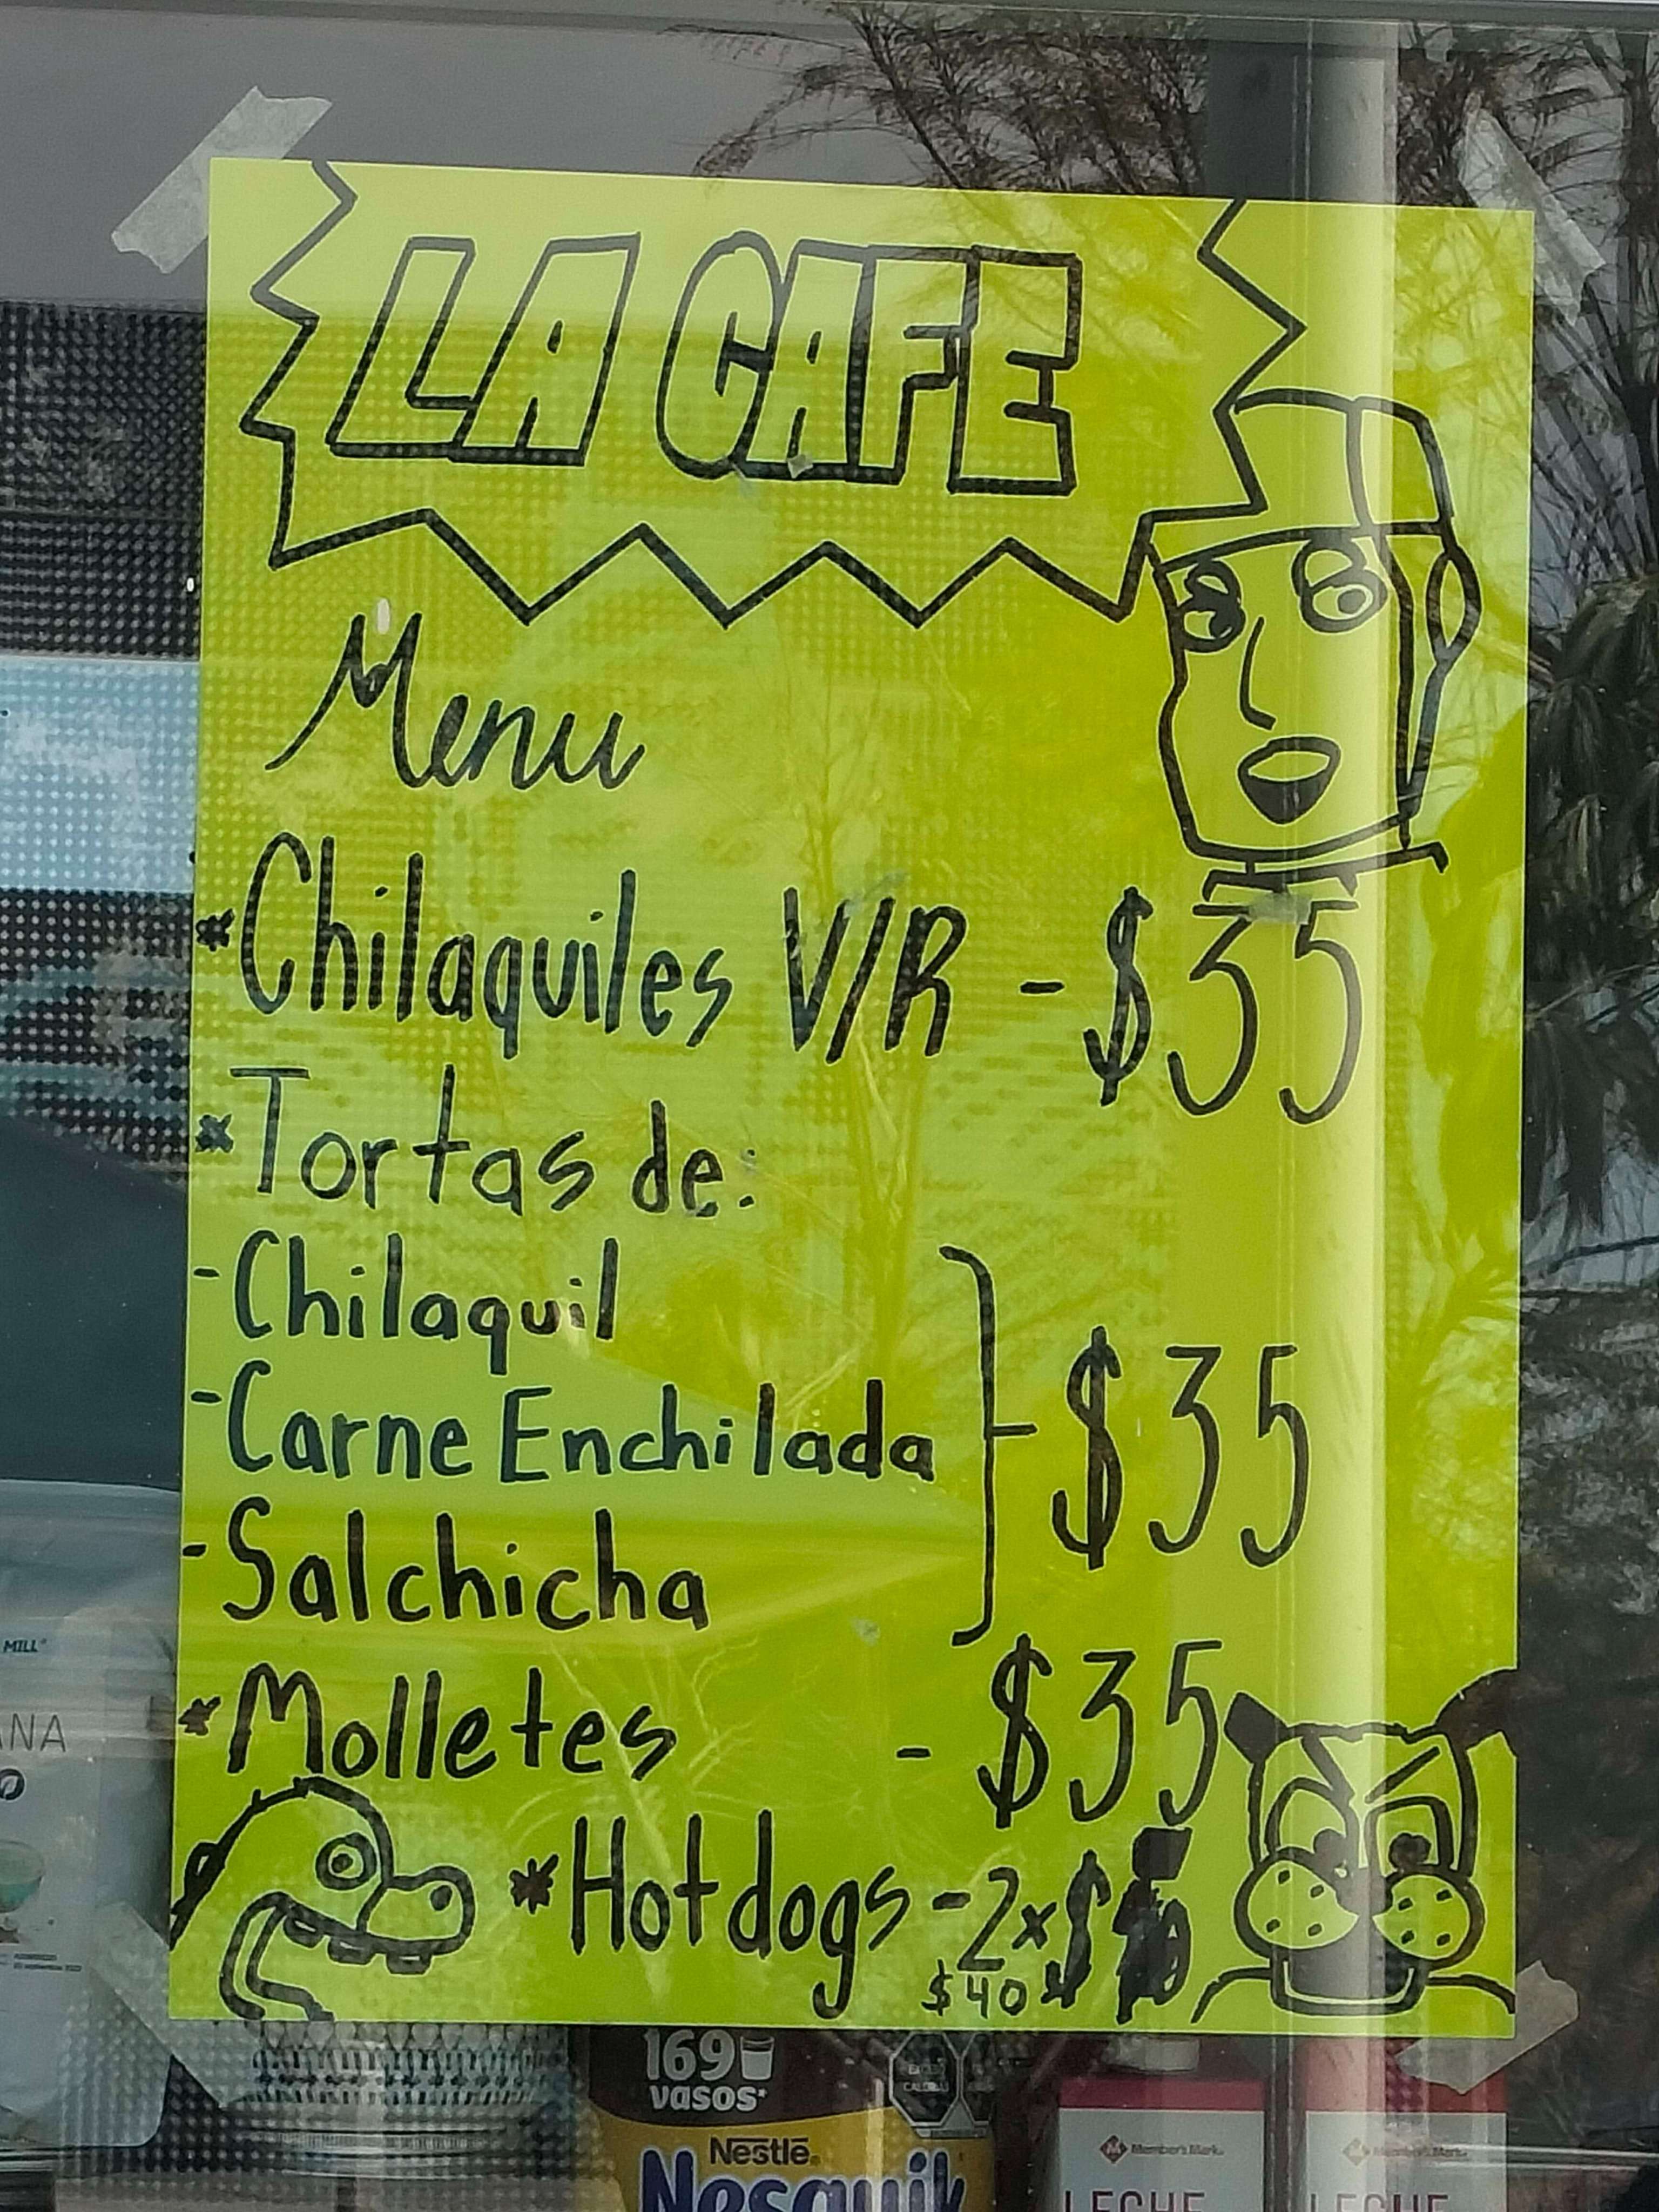 LA CAFE
Menu
*Chilaquiles V/R - $35
*Tortas de:
-Chilaquil
-Carne Enchilada
-Salchicha
- $35
*Molletes - $35
*Hotdogs - 2x$
$40
MILL®
ANA
169
vasos*
Nestlé
Nesquik
Member's Mark
LECHE
Member's Mark
LECHE